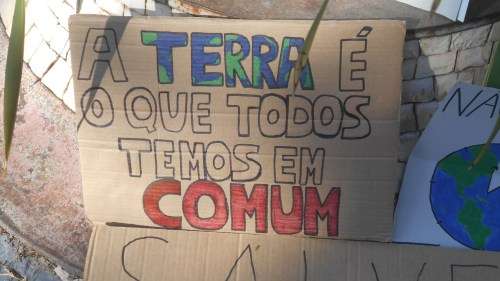 A TERRA É
O QUE TODOS
TEMOS EM
COMUM
NA